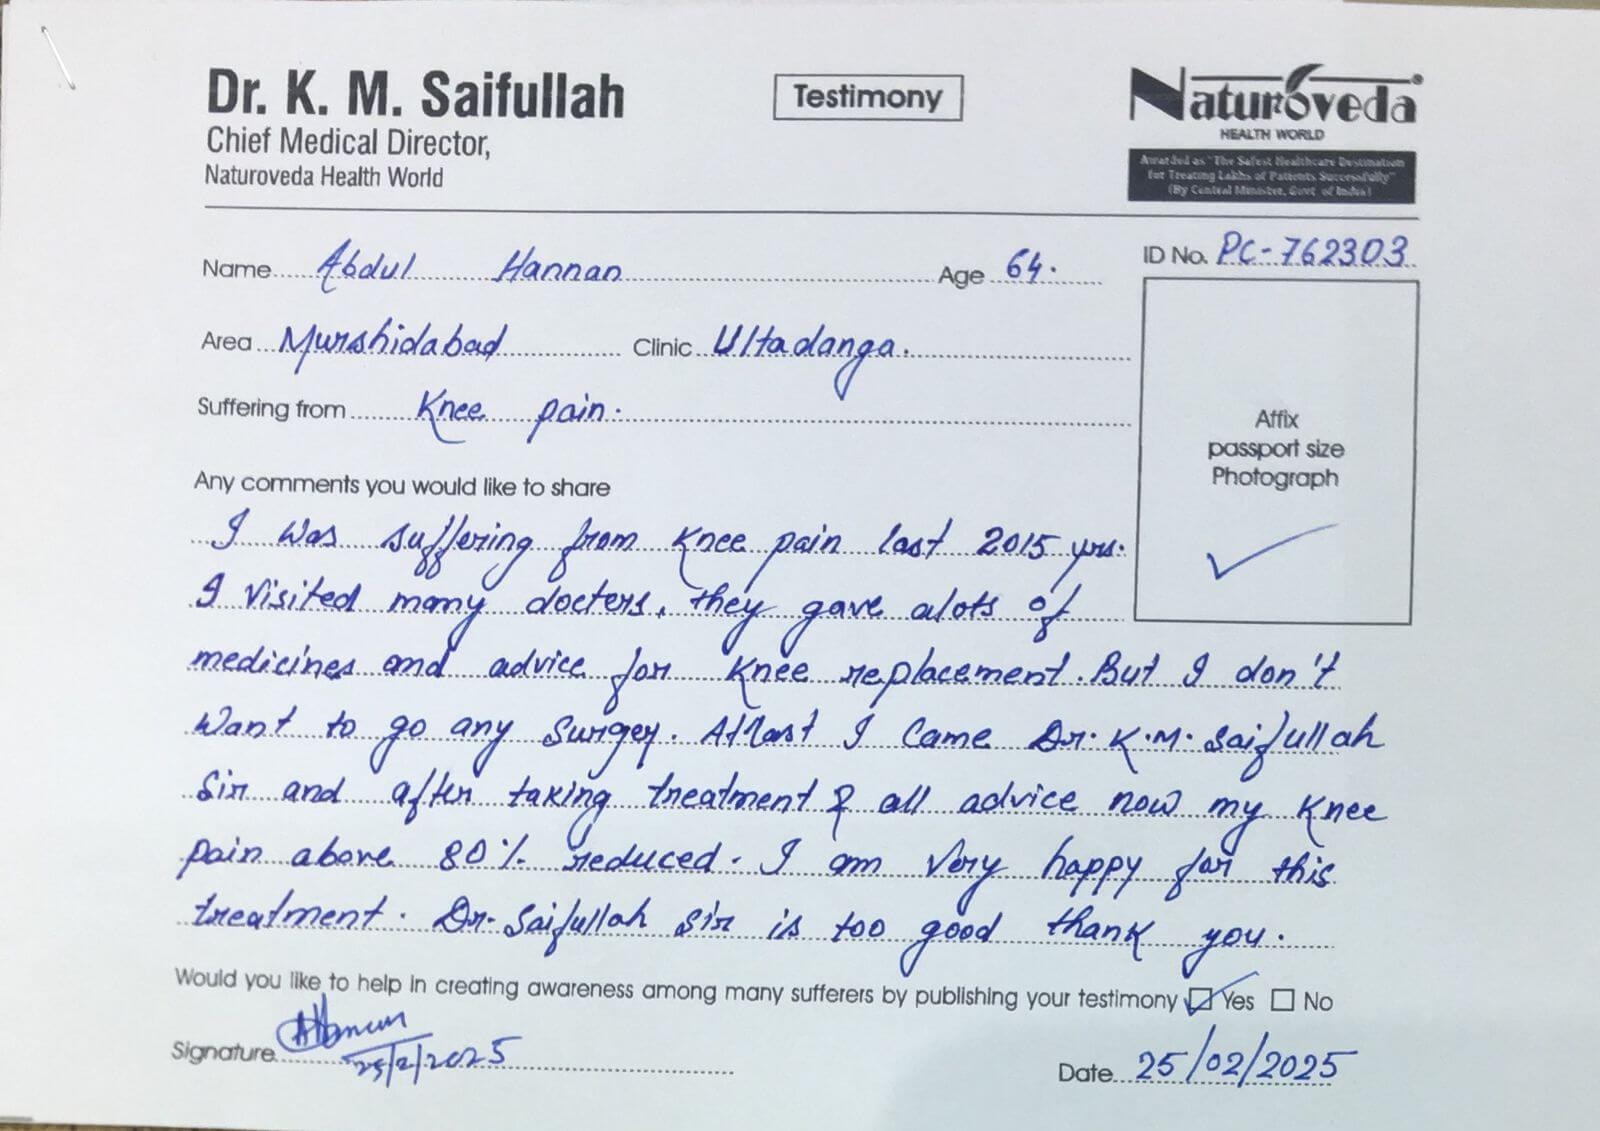 Dr. K. M. Saifullah
Chief Medical Director,
Naturoveda Health World
Testimony
Naturoveda®
HEALTH WORLD
Awarded as "The Safest Healthcare Destination
for Treating Lakhs of Patients Successfully"
(By Central Minister, Govt of India)
Name Abdul Hannan Age 64.
ID No. PC-762303
Area Murshidabad Clinic Ultadanga.
Suffering from Knee pain.
Affix
passport size
Photograph
Any comments you would like to share
I was suffering from Knee pain last 2015 yrs.
I visited many docters, they gave alots of
medicines and advice for Knee replacement. But I don't
want to go any surgey. Atlast I came Dr. K.M. Saifullah
Sir and after taking treatment & all advice now my Knee
pain above 80% reduced. I am very happy for this
treatment. Dr. Saifullah Sir is too good thank you.
Would you like to help in creating awareness among many sufferers by publishing your testimony Yes No
Signature
25/2/2025
Date 25/02/2025